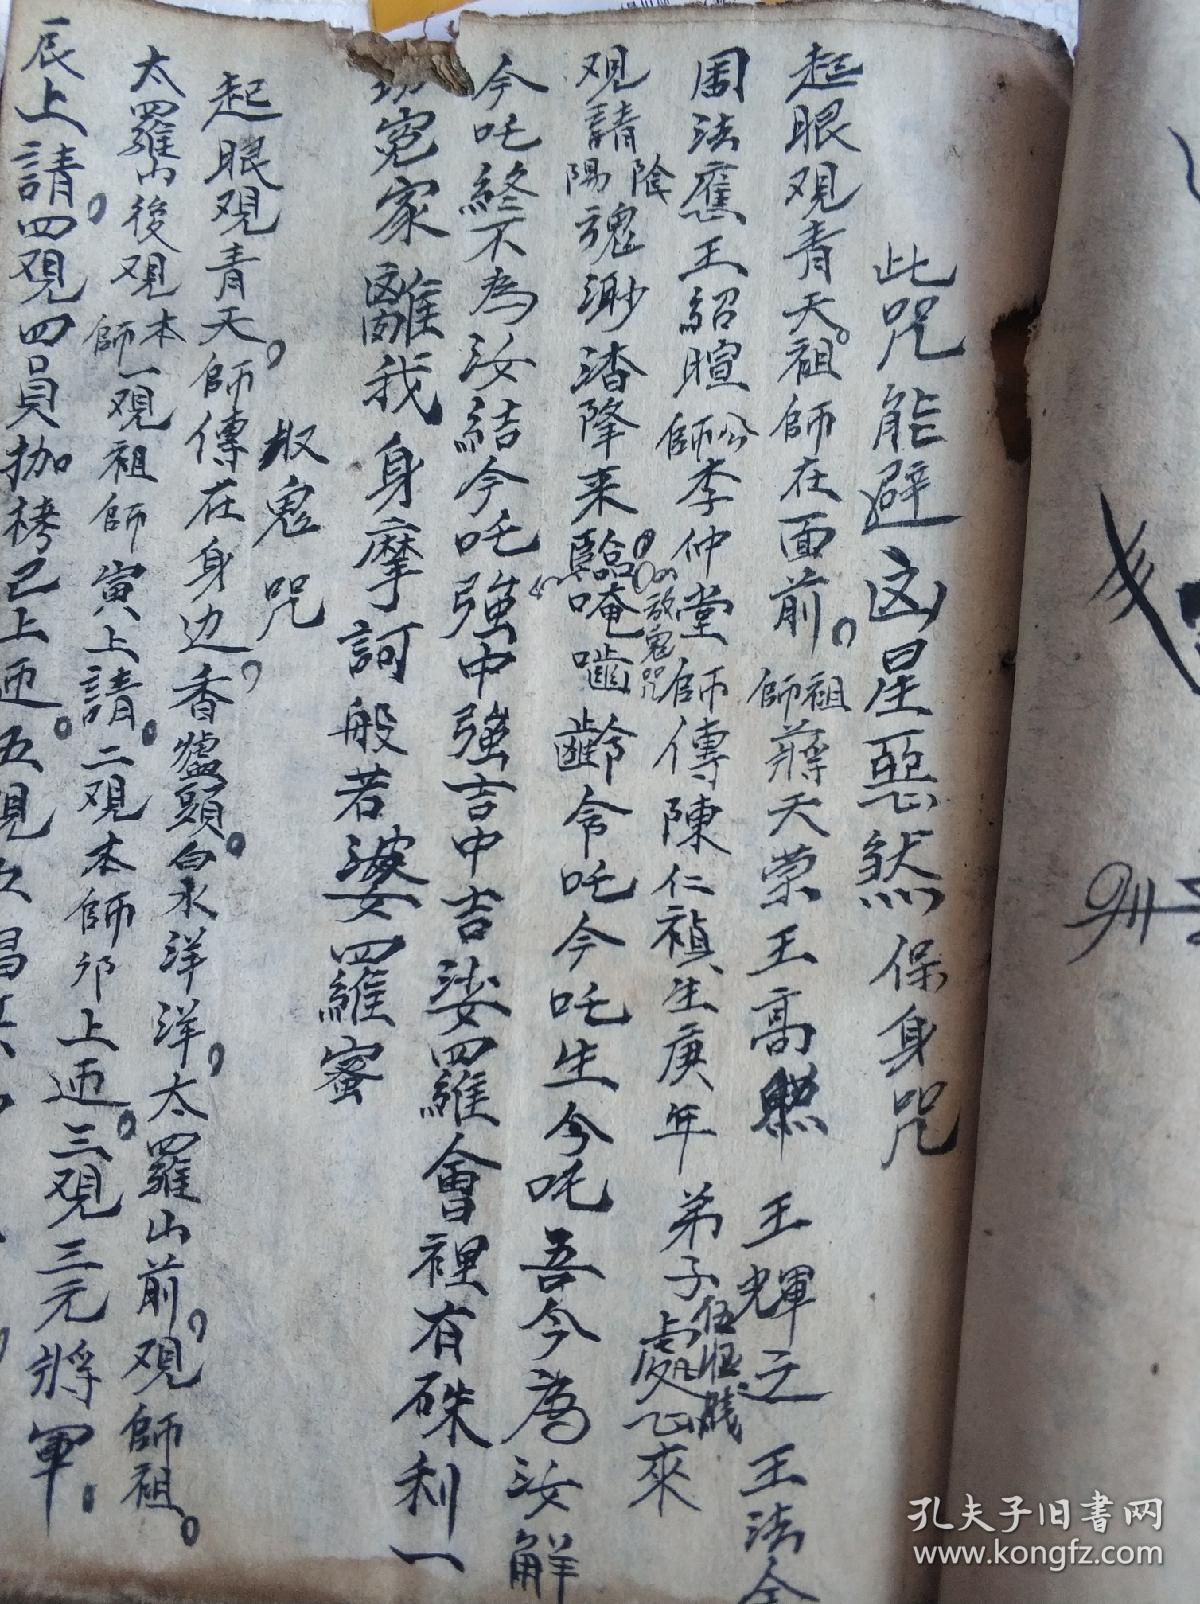 此咒能避凶星恶煞保身咒
起眼观青天祖師在面前祖師蒋天荣王高 王輝之王法全
周法應王紹暄師公李仲堂師傳陳仁禎生庚年弟子 處 來
观請陰陽魂渺渺降来臨唵嚙齡今吒今吒生今吒吾今為汝解
放鬼咒
今吒終不為汝結今吒強中強吉中吉婆羅會裡有硃利一
冤家離我身摩訶般若婆羅蜜
放鬼咒
起眼观青天師傳在身边香爐頭白水洋洋太羅山前观師祖
太羅山後观本師一观祖師寅上請二观本師卯上迊三观三元將軍
辰上請四观四員枷栲己上迊五見
孔夫子旧书网
www.kongfz.com